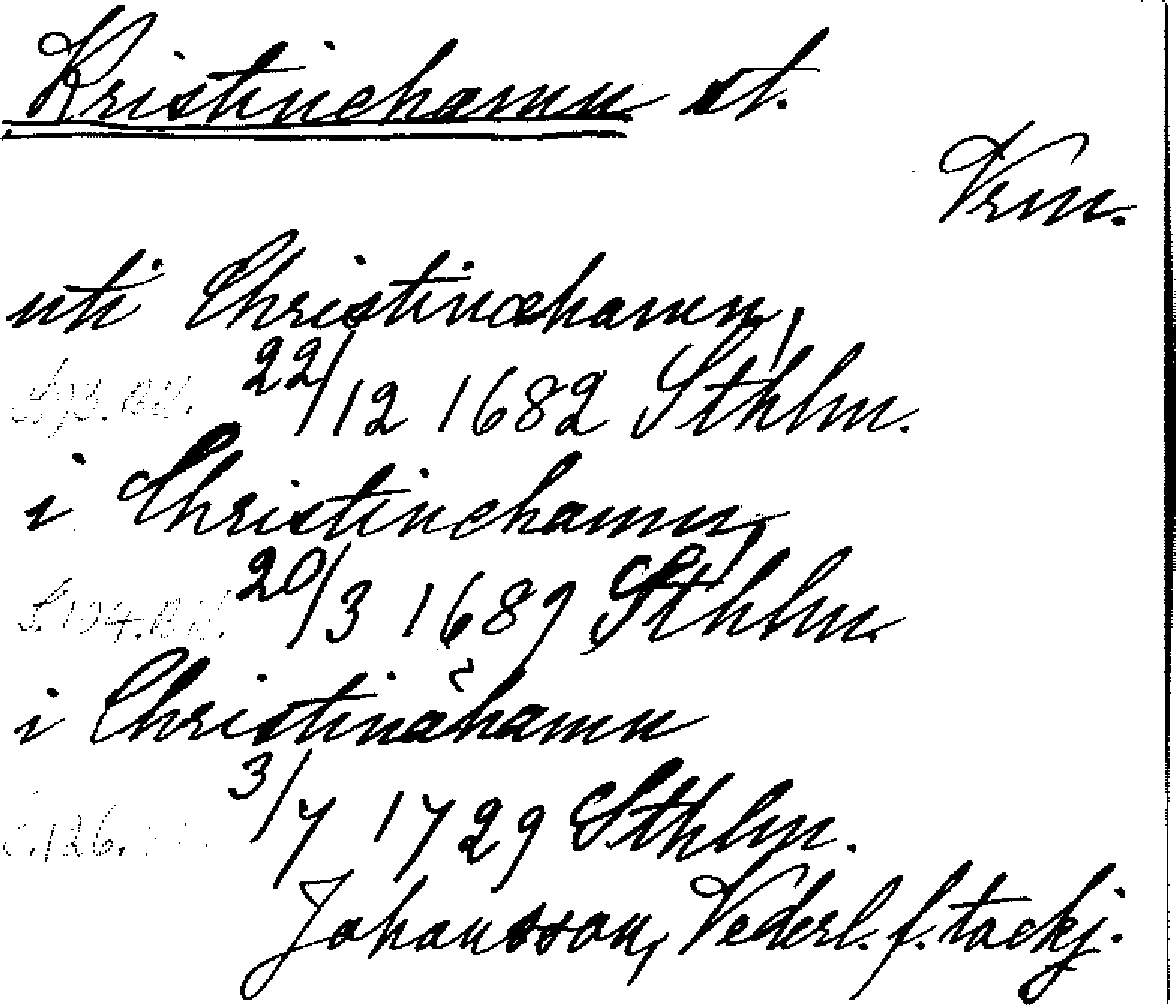 Kristinehamn st.
Vrm.
uti Christinæhamn,
22/12 1682 Sthlm.
i Christinehamn,
20/3 1689 Sthlm.
i Christinähamn
3/7 1729 Sthlm.
Johansson, Vederl. f. tackj.